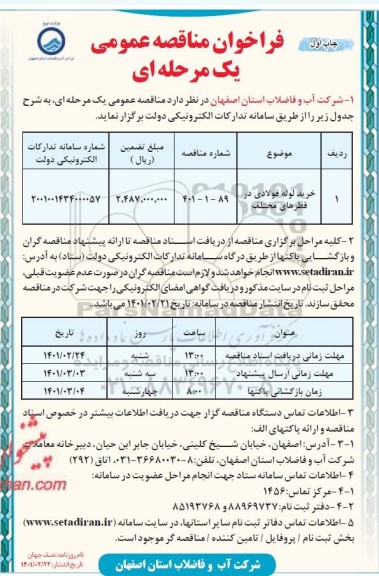 چاپ اول
فراخوان مناقصه عمومی
یک مرحله ای
شرکت آب و فاضلاب استان اصفهان
۱- شرکت آب و فاضلاب استان اصفهان در نظر دارد مناقصه عمومی یک مرحله ای، به شرح
جدول زیر را از طریق سامانه تدارکات الکترونیکی دولت برگزار نماید.
ردیف | موضوع | شماره مناقصه | مبلغ تضمین (ریال) | شماره سامانه تدارکات الکترونیکی دولت
۱ | خرید لوله فولادی در قطرهای مختلف | ۴۰۱-۱-۸۹ | ۲,۴۸۷,۰۰۰,۰۰۰ | ۲۰۰۱۰۰۱۴۳۴۰۰۰۰۵۷
۲-کلیه مراحل برگزاری مناقصه از دریافت اسناد مناقصه تا ارائه پیشنهاد مناقصه گران و
بازگشایی پاکتها از طریق درگاه سامانه تدارکات الکترونیکی دولت (ستاد) به آدرس:
www.setadiran.ir انجام خواهد شد و لازم است مناقصه گران در صورت عدم عضویت قبلی،
مراحل ثبت نام در سایت مذکور و دریافت گواهی امضای الکترونیکی را جهت شرکت در مناقصه
محقق سازند. تاریخ انتشار مناقصه در سامانه: تاریخ ۱۴۰۱/۰۲/۲۱ می باشد.
عنوان | ساعت | روز | تاریخ
مهلت زمانی دریافت اسناد مناقصه | ۱۳:۰۰ | شنبه | ۱۴۰۱/۰۲/۲۴
مهلت زمانی ارسال پیشنهاد | ۱۳:۰۰ | سه شنبه | ۱۴۰۱/۰۳/۰۳
زمان بازگشائی پاکتها | ۸:۰۰ | چهارشنبه | ۱۴۰۱/۰۳/۰۴
۳-اطلاعات تماس دستگاه مناقصه گزار جهت دریافت اطلاعات بیشتر در خصوص اسناد
مناقصه و ارائه پاکتهای الف:
۳-۱-آدرس: اصفهان، خیابان شیخ کلینی، خیابان جابر ابن حیان، دبیرخانه معاملات
شرکت آب و فاضلاب استان اصفهان، تلفن: ۸-۳۶۶۸۰۰۳۰-۰۳۱ اتاق (۲۹۲)
۴-اطلاعات تماس سامانه ستاد جهت انجام مراحل عضویت در سامانه:
۴-۱-مرکز تماس: ۱۴۵۶
۴-۲-دفتر ثبت نام: ۸۸۹۶۹۷۳۷ و ۸۵۱۹۳۷۶۸
۵-اطلاعات تماس دفاتر ثبت نام سایر استانها، در سایت سامانه (www.setadiran.ir)
بخش ثبت نام / پروفایل / تامین کننده / مناقصه گر موجود است.
نام روزنامه: نصف جهان
تاریخ انتشار: ۱۴۰۱/۰۲/۲۲
شرکت آب و فاضلاب استان اصفهان